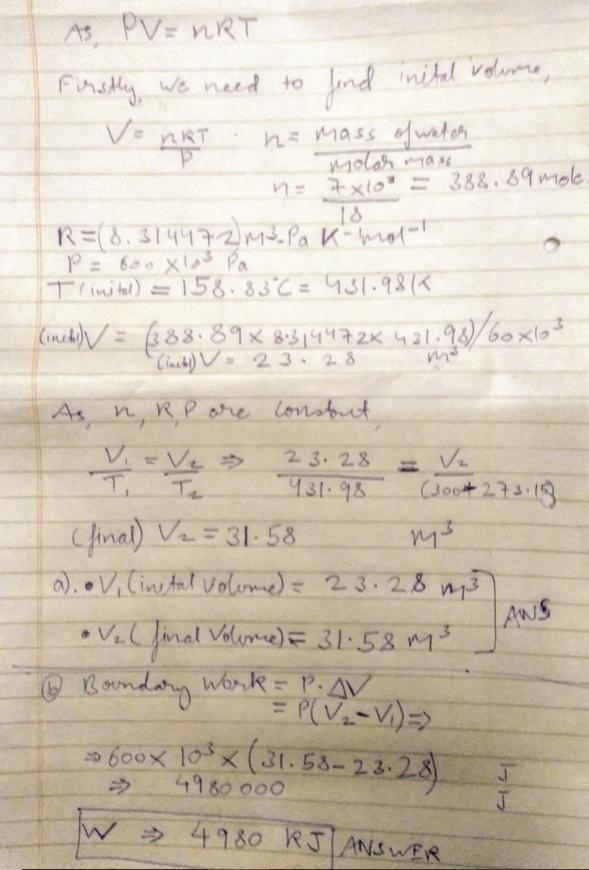 As, PV = nRT
Firstly, we need to find inital volume,
V = nRT/P . n = mass of water/molar mass
n = 7×10³/18 = 388.89 mole
R = (8.314472) m³.Pa K⁻¹mol⁻¹
P = 600 ×10³ Pa
T(inital) = 158.83°C = 431.98K
(inital)V = (388.89 × 8.314472 × 431.98)/60×10³
(inital) V = 23.28 m³
As, n, R, P are constant,
V₁/T₁ = V₂/T₂ ⇒ 23.28/431.98 = V₂/(300+273.15)
(final) V₂ = 31.58 m³
a). • V₁ (inetal volume) = 23.28 m³
• V₂ (final Volume) = 31.58 m³
ANS
ⓑ Boundary Work = P.ΔV
= P(V₂-V₁) ⇒
⇒ 600 × 10³ × (31.58-23.28) J
⇒ 4980000 J
W ⇒ 4980 KJ ANSWER